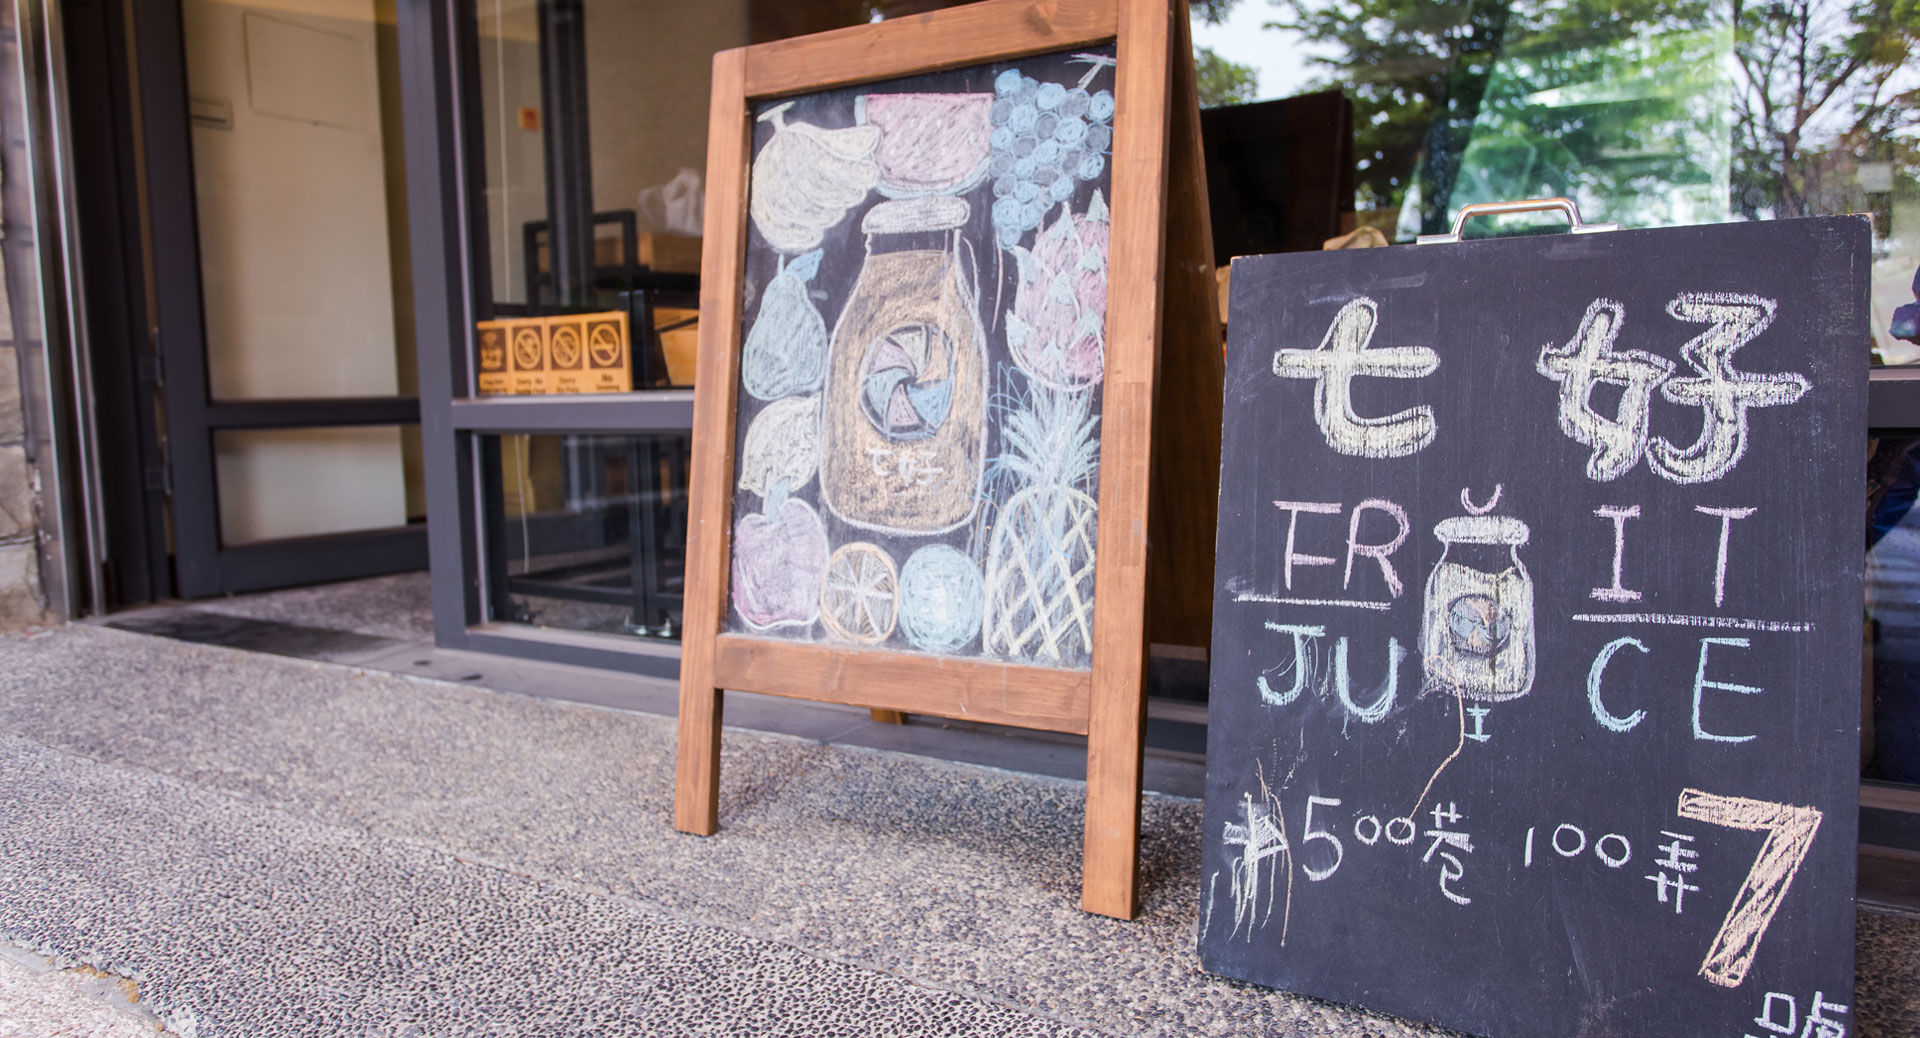 七好
七 好
FRUIT
JUICE
500巷 100弄7
號